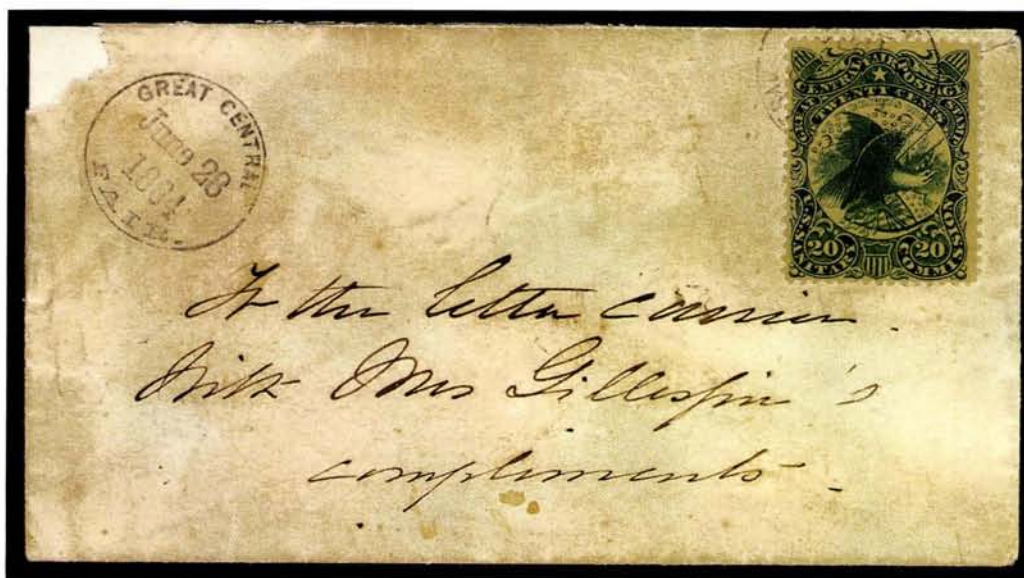 GREAT CENTRAL
June 28
1864
FAIR.
GREAT CENTRAL FAIR POSTAGE STAMP
TWENTY CENTS
20 20
SANITARY COMMISSION
To the letter carrier
With Mrs Gillespie's
compliments